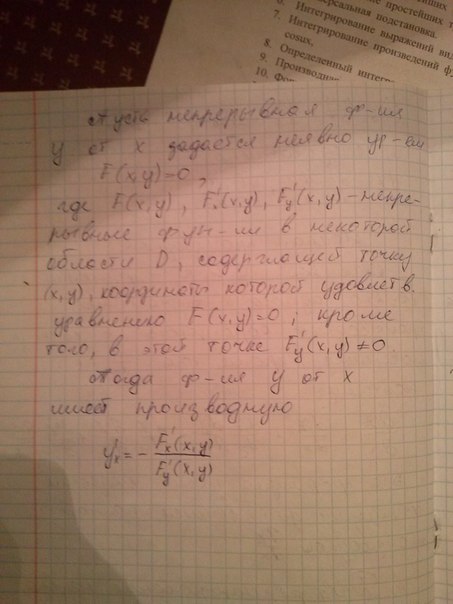 простейших т
ерсальная подстановка.
7. Интегрирование выражений вид
cosax,
Интегрирование произведений фу
8. Определенный интегр
9. Производная
10. Фор
Пусть непрерывная ф-ия
y от x задается неявно ур-ем
F(x,y)=0,
где F(x,y), F'x(x,y), F'y(x,y) - непре-
рывные фун-ии в некоторой
области D, содержащей точку
(x,y), координаты которой удовлетв.
уравнению F(x,y)=0; кроме
того, в этой точке F'y(x,y) ≠ 0
Тогда ф-ия y от x
имеет производную
y'x = - F'x(x,y) / F'y(x,y)